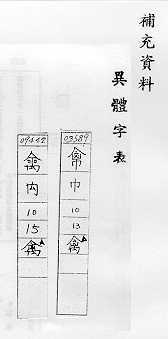 補充資料
異體字表
03589
巾
10
13
禽
09442
禸
10
15
禽